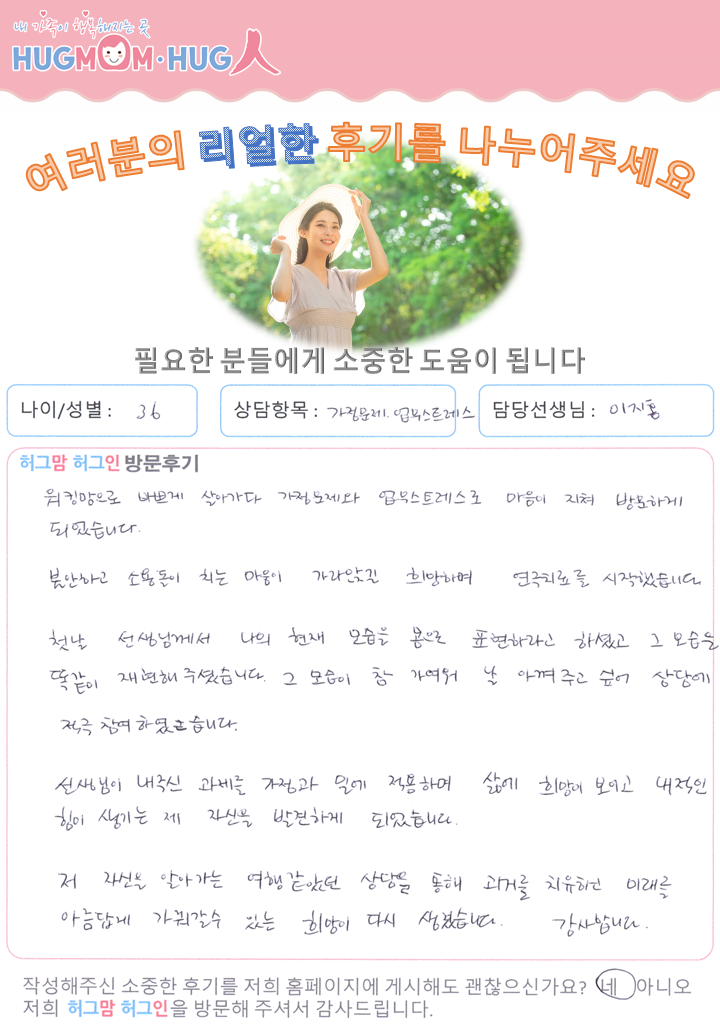 내 가족이 행복해지는 곳
HUGMOM·HUG人
여러분의 리얼한 후기를 나누어주세요
필요한 분들에게 소중한 도움이 됩니다
나이/성별 : 36
상담항목 : 가정문제. 업무스트레스
담당선생님 : 이지홍
허그맘 허그인 방문후기
워킹맘으로 바쁘게 살아가다 가정문제와 업무스트레스로 마음이 지쳐 방문하게
되었습니다.
불안하고 소용돌이 치는 마음이 가라앉길 희망하며 연극치료를 시작했습니다
첫날 선생님께서 나의 현재 모습을 몸으로 표현하라고 하셨고 그 모습을
똑같이 재현해 주셨습니다. 그 모습이 참 가여워 날 아껴주고 싶어 상담에
적극 참여하였습니다.
선생님이 내주신 과제를 가정과 일에 적용하며 삶에 희망이 보이고 내적인
힘이 생기는 제 자신을 발견하게 되었습니다.
저 자신을 알아가는 여행같았던 상담을 통해 과거를 치유하고 미래를
아름답게 가꿔갈수 있는 희망이 다시 생겼습니다. 감사합니다.
작성해주신 소중한 후기를 저희 홈페이지에 게시해도 괜찮으신가요? 네 아니오
저희 허그맘 허그인을 방문해 주셔서 감사드립니다.